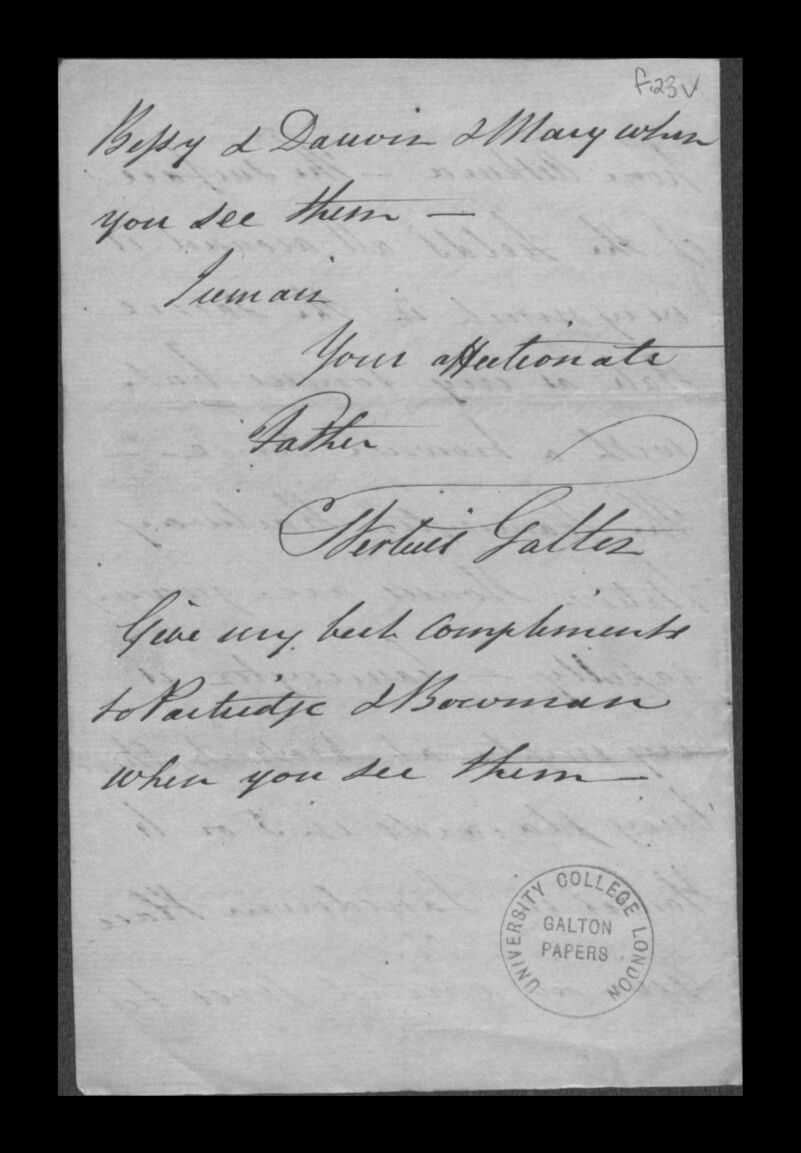 f.23v
Bessy & Darwin & Mary when
you see them —
I remain
Your affectionate
Father
S Tertius Galton
Give my best compliments
to Partridge & Bowman
when you see them —
UNIVERSITY COLLEGE LONDON
GALTON
PAPERS